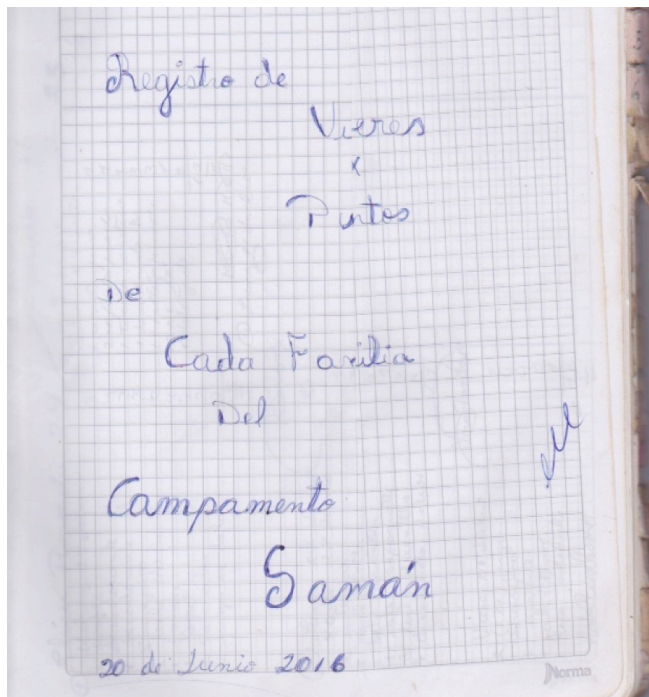 Registro de
Vieres
x
Puntos
De
Cada Familia
Del
Campamento
Samán
20 de Junio 2016
Norma